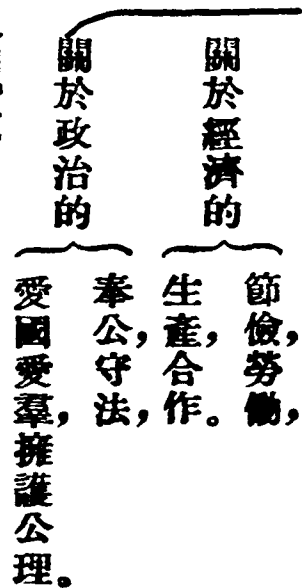 關於經濟的
節儉，勞働，
生產，合作。
關於政治的
奉公，守法，
愛國愛羣，擁護公理。